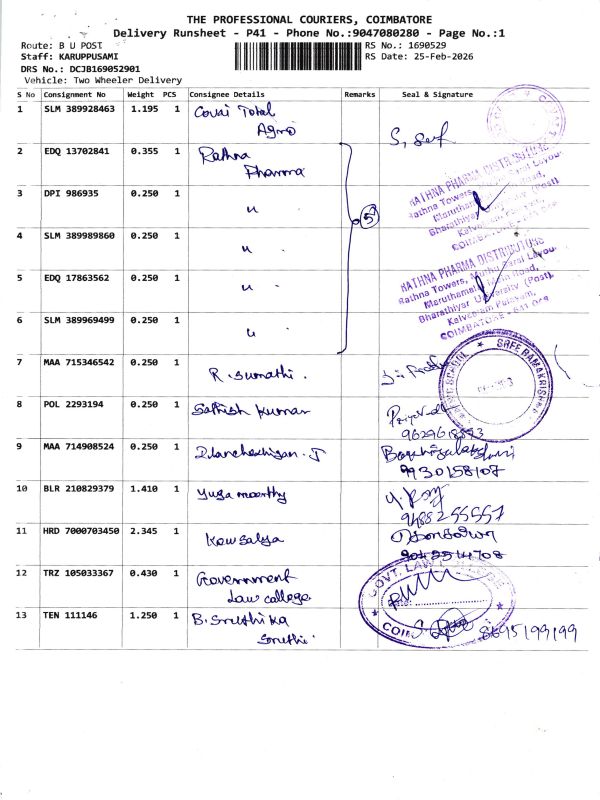 THE PROFESSIONAL COURIERS, COIMBATORE
Delivery Runsheet - P41 - Phone No.:9047080280 - Page No.:1
Route: B U POST
RS No.: 1690529
Staff: KARUPPUSAMI
RS Date: 25-Feb-2026
DRS No.: DCJB169052901
Vehicle: Two Wheeler Delivery
S No Consignment No Weight PCS Consignee Details Remarks Seal & Signature
1 SLM 389928463 1.195 1 Covai Total
Agro
2 EDQ 13702841 0.355 1 Rathna
Pharma
RATHNA PHARMA DISTRIBUTORS
Rathna Towers,
Maruthamalai Main Road,
Bharathiyar University (Post)
3 DPI 986935 0.250 1 "
4 SLM 389989860 0.250 1 "
5
RATHNA PHARMA DISTRIBUTORS
Rathna Towers,
Maruthamalai Main Road,
Bharathiyar University (Post),
COIMBATORE
5 EDQ 17863562 0.250 1 "
6 SLM 389969499 0.250 1 "
7 MAA 715346542 0.250 1 R. Sumathi.
SREE RAMAKRISH
SCHOOL
8 POL 2293194 0.250 1 Sathish kumar
9 MAA 714908524 0.250 1
9930158107
10 BLR 210829379 1.410 1 yuga moorthy
9488255557
11 HRD 7000703450 2.345 1 Kowsalya
12 TRZ 105033367 0.430 1 Government
Law college.
GOVT. LAW
13 TEN 111146 1.250 1 B. Sruthika
Sruthi.
8695199199